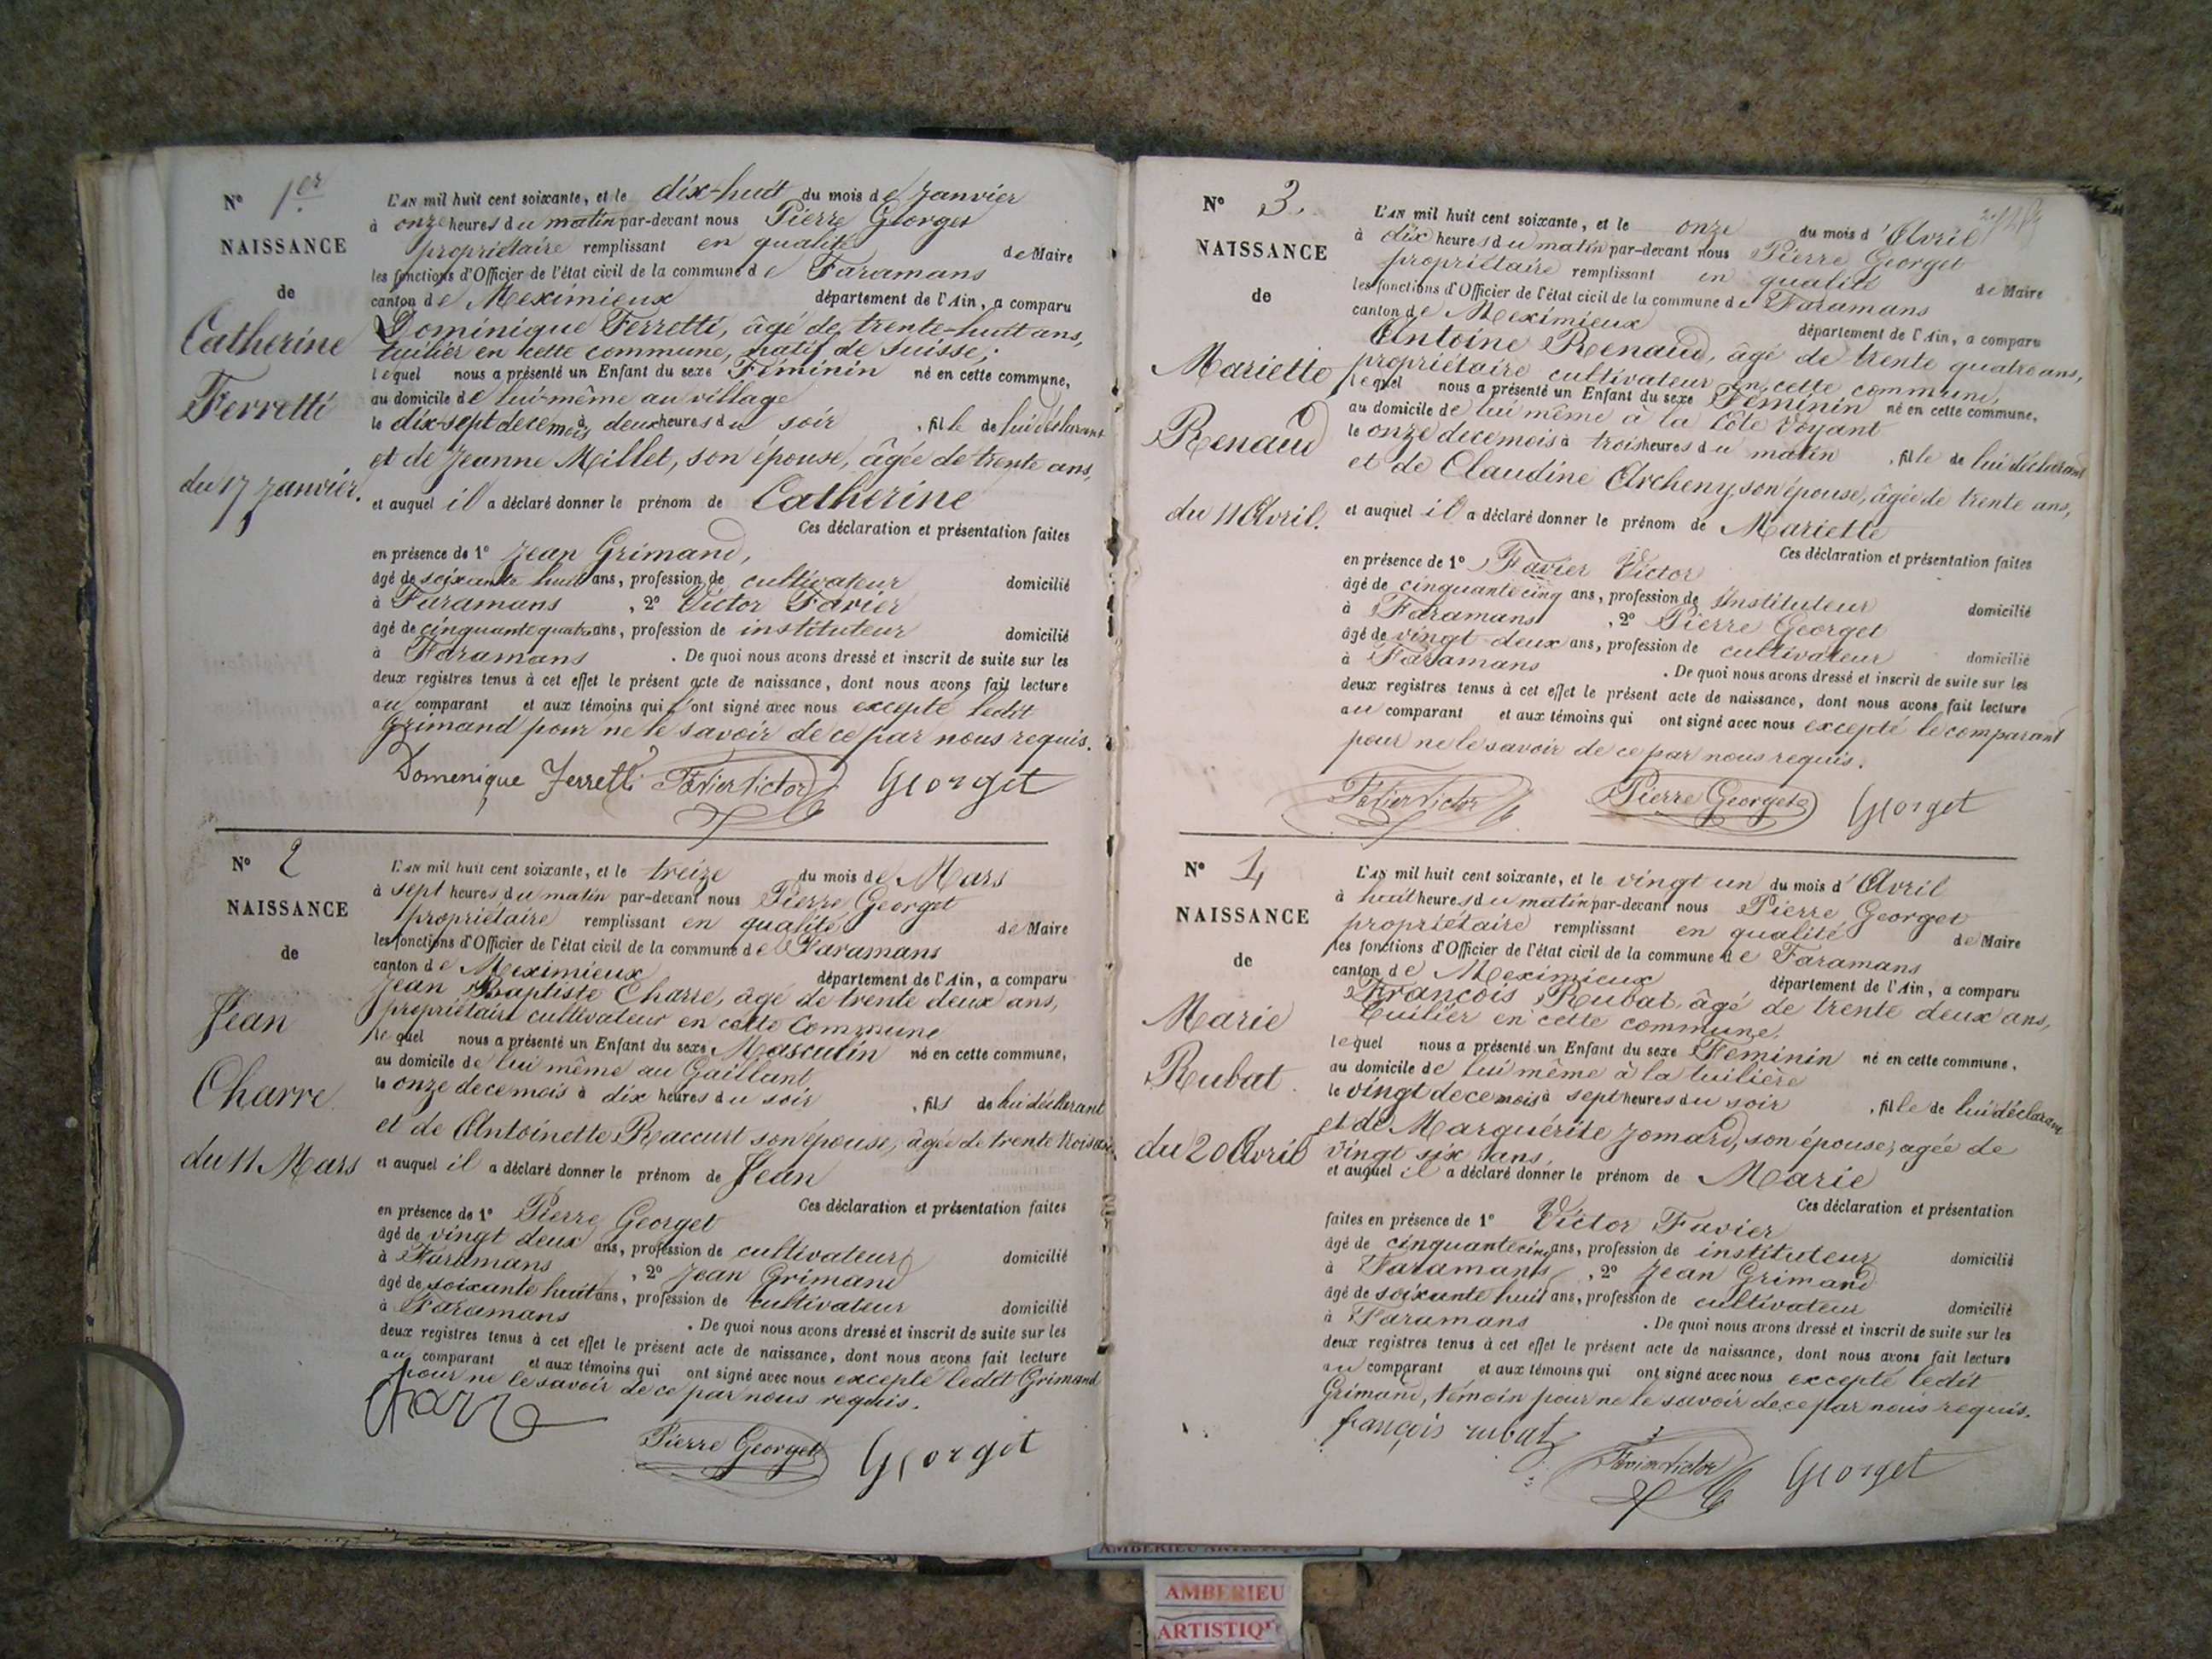 N° 1er
NAISSANCE
de
Catherine
Ferretti
du 17 Janvier.
L'AN mil huit cent soixante, et le dix-huit du mois de Janvier
à onze heures du matin par-devant nous Pierre Georget
propriétaire remplissant en qualité de Maire
les fonctions d'Officier de l'état civil de la commune de Faramans
canton de Meximieux département de l'Ain, a comparu
Dominique Ferretti, âgé de trente-huit ans,
tuilier en cette commune, natif de Suisse;
lequel nous a présenté un Enfant du sexe Féminin né en cette commune,
au domicile de lui-même au village
le dix-sept de ce mois à deux heures du soir, fille de lui déclarant
et de Jeanne Millet, son épouse, âgée de trente ans,
et auquel il a déclaré donner le prénom de Catherine
Ces déclaration et présentation faites
en présence de 1° Jean Grimand,
âgé de soixante huit ans, profession de cultivateur domicilié
à Faramans, 2° Victor Favier
âgé de cinquante quatre ans, profession de instituteur domicilié
à Faramans. De quoi nous avons dressé et inscrit de suite sur les
deux registres tenus à cet effet le présent acte de naissance, dont nous avons fait lecture
au comparant et aux témoins qui ont signé avec nous excepté ledit
Grimand pour ne le savoir de ce par nous requis.
Domenique Ferretti Favier Victor Georget
N° 2
NAISSANCE
de
Jean
Charre
du 11 Mars
L'AN mil huit cent soixante, et le treize du mois de Mars
à sept heures du matin par-devant nous Pierre Georget
propriétaire remplissant en qualité de Maire
les fonctions d'Officier de l'état civil de la commune de Faramans
canton de Meximieux département de l'Ain, a comparu
Jean Baptiste Charre, âgé de trente deux ans,
propriétaire cultivateur en cette Commune
lequel nous a présenté un Enfant du sexe Masculin né en cette commune,
au domicile de lui même au Gaillant
le onze de ce mois à dix heures du soir, fils de lui déclarant
et de Antoinette Raccurt son épouse, âgée de trente trois ans,
et auquel il a déclaré donner le prénom de Jean
Ces déclaration et présentation faites
en présence de 1° Pierre Georget
âgé de vingt deux ans, profession de cultivateur domicilié
à Faramans, 2° Jean Grimand
âgé de soixante huit ans, profession de cultivateur domicilié
à Faramans. De quoi nous avons dressé et inscrit de suite sur les
deux registres tenus à cet effet le présent acte de naissance, dont nous avons fait lecture
au comparant et aux témoins qui ont signé avec nous excepté ledit Grimand
pour ne le savoir de ce par nous requis.
Charre
Pierre Georget Georget
N° 3.
NAISSANCE
de
Mariette
Renaud
du 11 Avril.
L'AN mil huit cent soixante, et le onze du mois d'Avril
à dix heures du matin par-devant nous Pierre Georget
propriétaire remplissant en qualité de Maire
les fonctions d'Officier de l'état civil de la commune de Faramans
canton de Meximieux département de l'Ain, a comparu
Antoine Renaud, âgé de trente quatre ans,
propriétaire cultivateur en cette commune,
lequel nous a présenté un Enfant du sexe Féminin né en cette commune,
au domicile de lui même à la Côte Voyant
le onze de ce mois à trois heures du matin, fille de lui déclarant
et de Claudine Archeny, son épouse, âgée de trente ans,
et auquel il a déclaré donner le prénom de Mariette
Ces déclaration et présentation faites
en présence de 1° Favier Victor
âgé de cinquante cinq ans, profession de Instituteur domicilié
à Faramans, 2° Pierre Georget
âgé de vingt-deux ans, profession de cultivateur domicilié
à Faramans. De quoi nous avons dressé et inscrit de suite sur les
deux registres tenus à cet effet le présent acte de naissance, dont nous avons fait lecture
au comparant et aux témoins qui ont signé avec nous excepté le comparant
pour ne le savoir de ce par nous requis.
Favier Victor Pierre Georget Georget
N° 4
NAISSANCE
de
Marie
Rubat.
du 20 Avril
L'AN mil huit cent soixante, et le vingt un du mois d'Avril
à huit heures du matin par-devant nous Pierre Georget
propriétaire remplissant en qualité de Maire
les fonctions d'Officier de l'état civil de la commune de Faramans
canton de Meximieux département de l'Ain, a comparu
François Rubat, âgé de trente deux ans,
tuilier en cette commune,
lequel nous a présenté un Enfant du sexe Féminin né en cette commune,
au domicile de lui même à la tuilière
le vingt de ce mois à sept heures du soir, fille de lui déclarant
et de Marguérite Jomard, son épouse, agée de
vingt six ans,
et auquel il a déclaré donner le prénom de Marie
Ces déclaration et présentation
faites en présence de 1° Victor Favier
âgé de cinquante cinq ans, profession de instituteur domicilié
à Faramans, 2° Jean Grimand
âgé de soixante huit ans, profession de cultivateur domicilié
à Faramans. De quoi nous avons dressé et inscrit de suite sur les
deux registres tenus à cet effet le présent acte de naissance, dont nous avons fait lecture
au comparant et aux témoins qui ont signé avec nous excepté ledit
Grimand, témoin pour ne le savoir de ce par nous requis.
françois rubat
Favier Victor Georget
AMBERIEU
ARTISTIQU